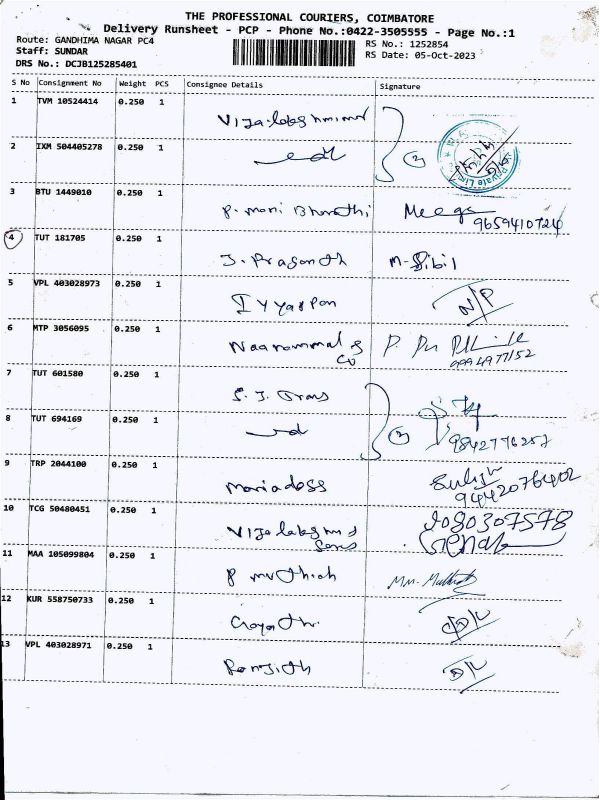 THE PROFESSIONAL COURIERS, COIMBATORE
Delivery Runsheet - PCP - Phone No.:0422-3505555 - Page No.:1
Route: GANDHIMA NAGAR PC4
RS No.: 1252854
Staff: SUNDAR
RS Date: 05-Oct-2023
DRS No.: DCJB125285401
S No Consignment No Weight PCS Consignee Details Signature
1 TVM 10524414 0.250 1
2 IXM 504405278 0.250 1
(2)
Private Lim
3 BTU 1449010 0.250 1
P. mani Bharathi
9659410724
4 TUT 181705 0.250 1
J. Prasanth M-Sibil
5 VPL 403028973 0.250 1
Iyyappan N/P
6 MTP 3056095 0.250 1
Naanammal & Co
9994977152
7 TUT 601580 0.250 1
S. J. Trans
8 TUT 694169 0.250 1
(2) 9842776257
9 TRP 2044100 0.250 1
Mariadoss
9442076402
10 TCG 50480451 0.250 1
9080307578
Sons
11 MAA 105099804 0.250 1
P muthiah
12 KUR 558750733 0.250 1
Gayathri D/L
13 VPL 403028971 0.250 1
Ranjith D/L